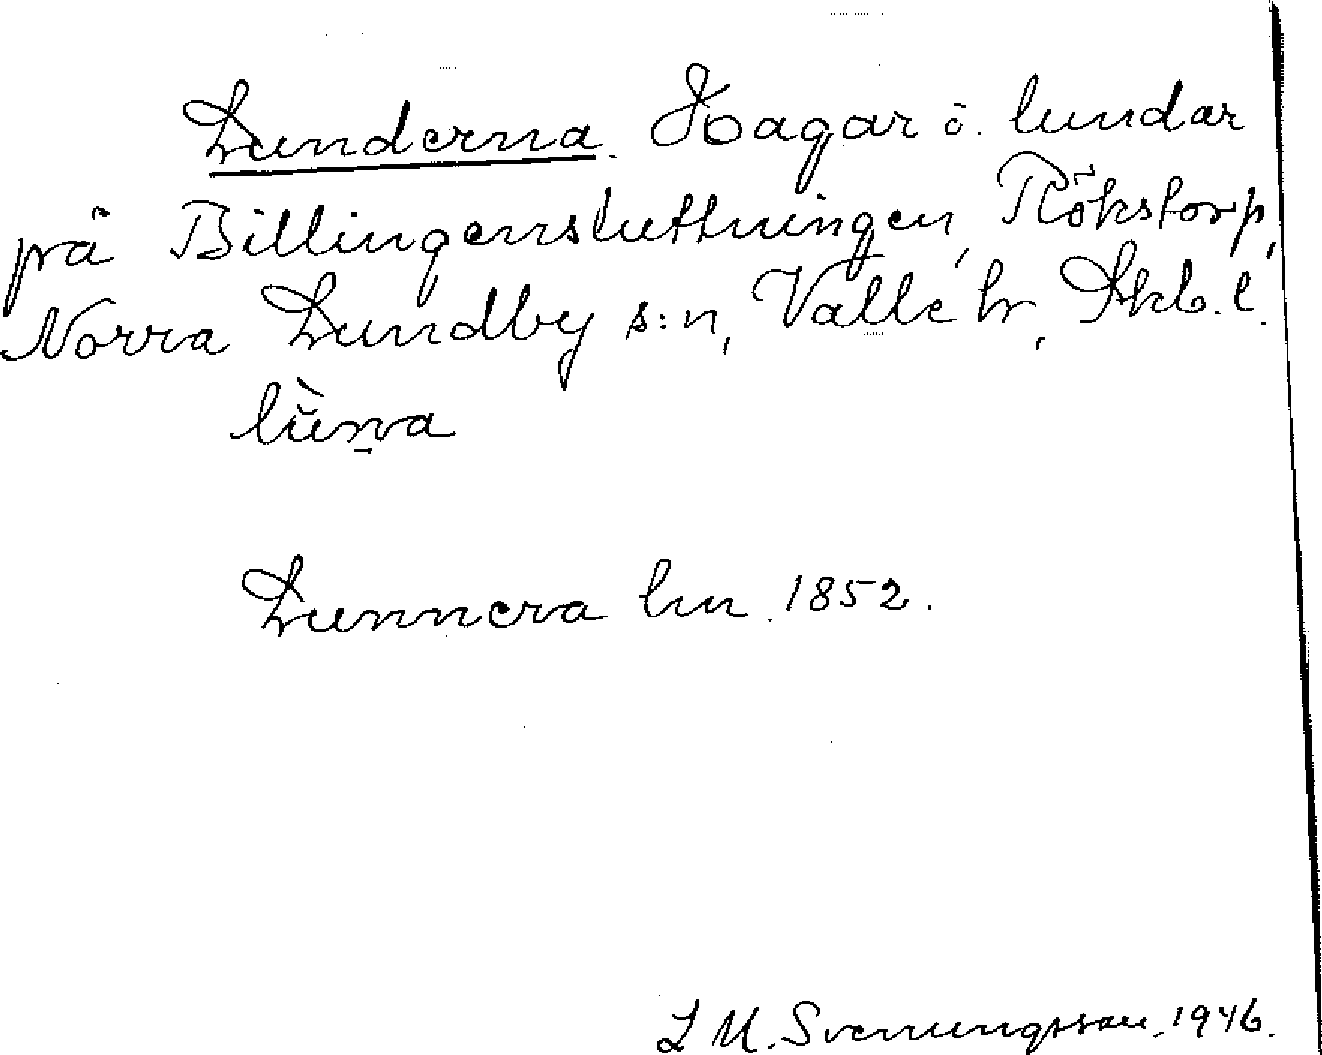 Lunderna. Hagar o. lundar
på Billingensluttningen, Rökstorp,
Norra Lundby s:n, Valle hr, Skb. l.
Lunnera hm. 1852.
L M. Svenungsson. 1946.